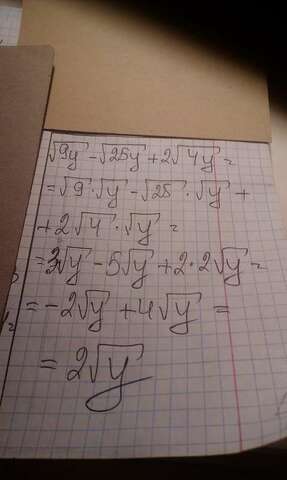 √9y - √25y + 2√4y =
= √9 · √y - √25 · √y +
+ 2√4 · √y =
= 3√y - 5√y + 2·2√y =
= -2√y + 4√y =
= 2√y